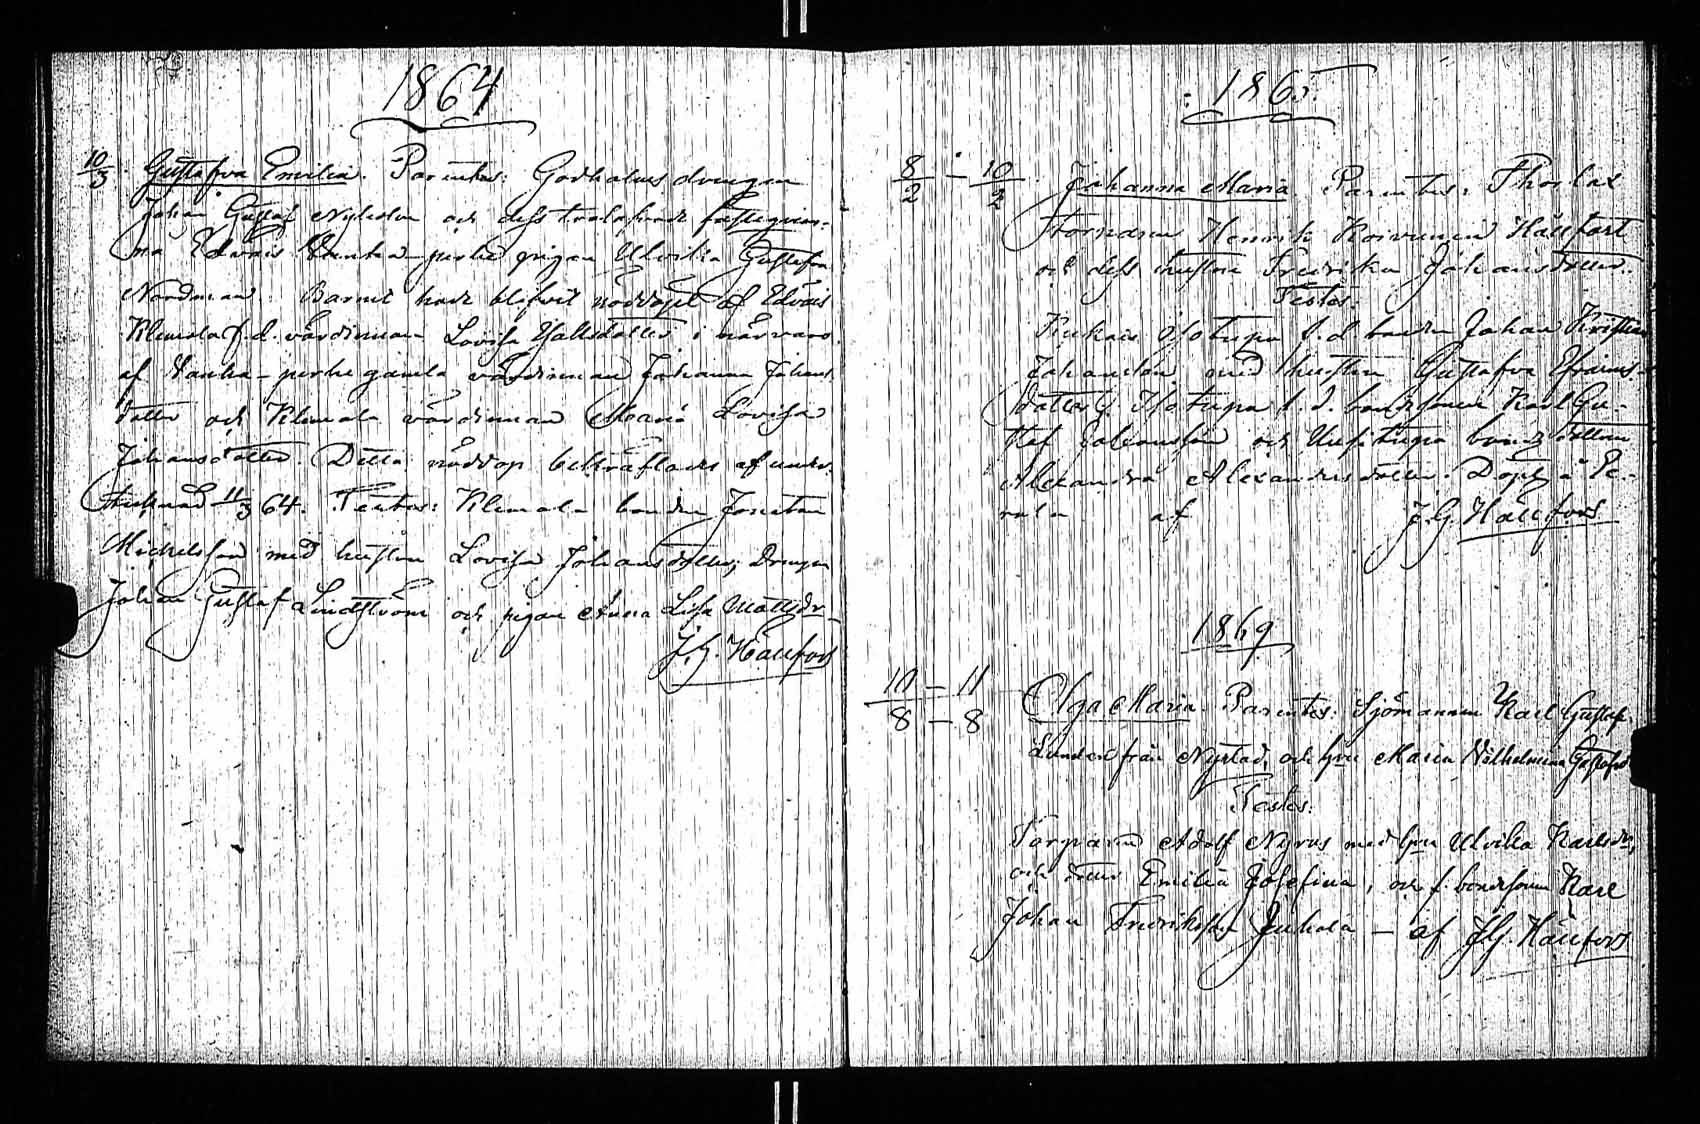 1864
10/3 Gustafva Emilia. Parentes: Godhalms drengen
Johan Gustaf Nylestun och dess trolofvade fästeqvin-
na Edväis Vanha-perhe pigan Ulrika Gustafva
Nordman. Barnet hade blifvit nöddöpt af Edväis
Klemola f.d. värdinnan Lovisa
af Vanha-perhe gamla värdinnan Johanna Johans
dotter och Klemola värdinnan Maria Lovisa
Johansdotter. Detta nöddop bekräftades af under-
tecknad 11/3 64. Testes: Klemola bonden Jonatan
Michelsson med hustru Lovisa Johansdotter, Drengen
Johan Gustaf Lindström och pigan Anna Lisa Mattsdr
J.G. Hällfors
1865.
8/2 – 10/2 Johanna Maria. Parentes:
torparen Henrik Koivunen Hällfart
och dess hustru Fredrika Johansdotter.
Testes:
Isotupa f.d. bonden Johan Kristian
Johansson med hustru Gustafva Efraims-
dotter, Isotupa f.d. bondsonen Karl Gu-
staf Johansson och Uusitupa bondedottern
Alexandra Alexandersdotter. Döpt å Pe-
rala af J.G. Hällfors
1869
10 – 11
8 – 8
Olga Maria. Parentes: Sjömannen Karl Gustaf
Lunden från Nystad, och hru Maria Vilhelmina Gustafsd.
Testes:
Torparen Adolf Nyroos med hru Ulrika Karlsdr,
och dotter Emilia Josefina, och f. bondsonen Karl
Johan Fredriksson Juhola – af J.G. Hällfors